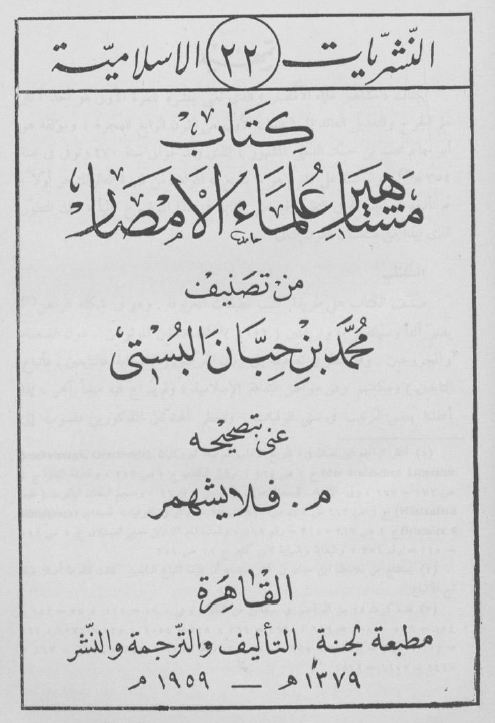 النّشريّات ٢٢ الاسلاميّة
كتاب
مشاهير عُلماء الأمصار
من تصنيف
محمّد بن حبّان البُستى
عنى بتصحيحه
م. فلايشهمر
القاهرة
مطبعة لجنة التأليف والترجمة والنشر
١٣٧٩ هـ — ١٩٥٩ م